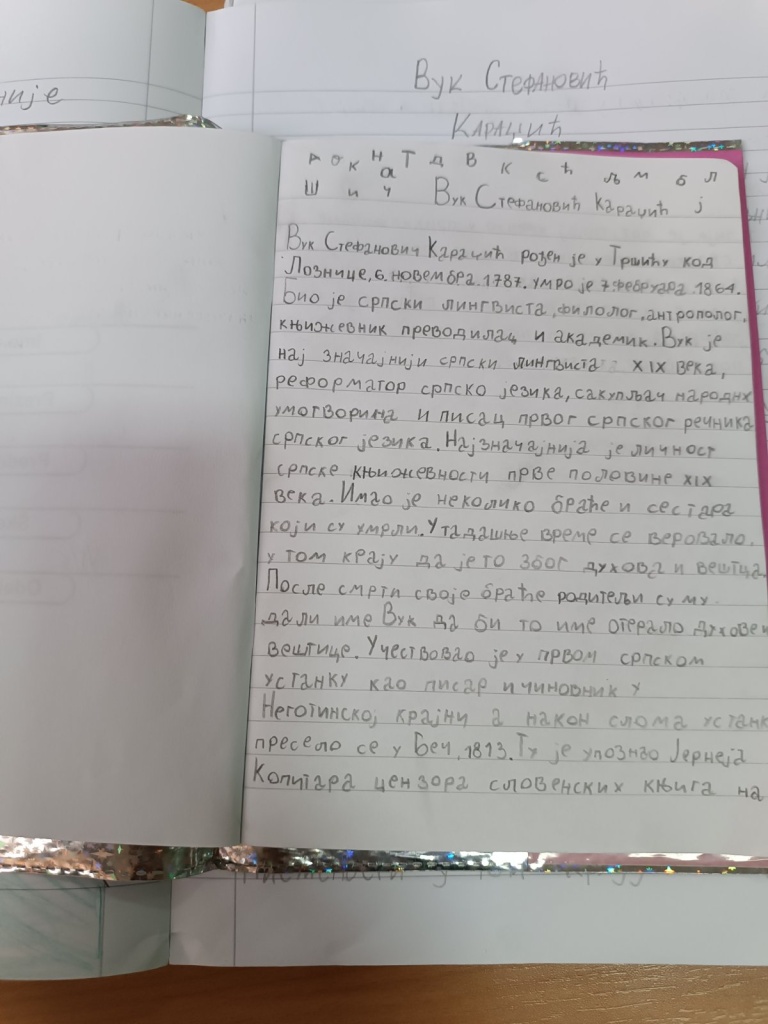 није
Вук Стефановић
Караџић
А О К Н Т Д В К С Ћ Љ М Б Л
а
Ш И Ч Вук Стефановић Караџић Ј
Вук Стефановић Караџић рођен је у Тршићу код
Лознице, 6. новембра 1787. умро је 7. фебруара 1864.
Био је српски лингвиста, филолог, антрополог,
књижевник преводилац и академик. Вук је
нај значајнији српски лингвиста XIX века,
реформатор српско језика, сакупљач народнх
умотворина и писац првог српског речника
српског језика. Најзначајнија је личност
српске књижевности прве половине XIX
века. Имао је неколико браће и сестара
који су умрли. У тадашње време се веровало.
у том крају да је то због духова и вештица.
После смрти своје браће родитељи су му.
дали име Вук да би то име отерало духове и
вештице. Учествовао је у првом српском
устанку као писар и чиновник у
Неготинској крајни а након слома устанк
пресело се у Беч, 1813. Ту је упознао Јернеја
Копитара цензора словенских књига на